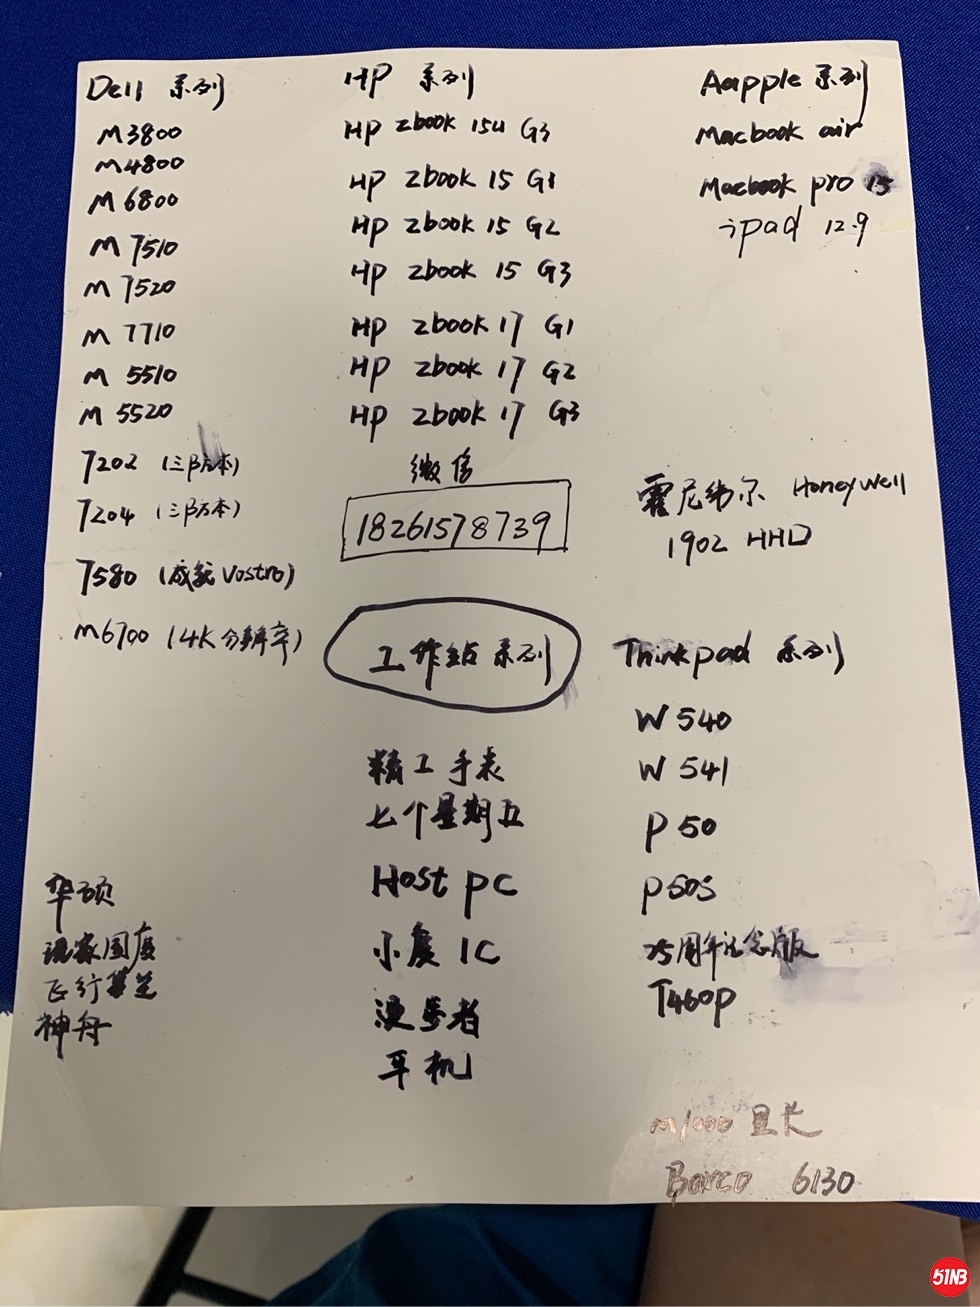 Dell 系列
M3800
M4800
M6800
M7510
M7520
M7710
M 5510
M 5520
7202 (三防本)
7204 (三防本)
7580 (成就Vostro)
M6700 (4K分辨率)
华硕
玩家国度
飞行堡垒
神舟
HP 系列
HP Zbook 15u G3
HP Zbook 15 G1
HP Zbook 15 G2
HP Zbook 15 G3
HP Zbook 17 G1
HP Zbook 17 G2
HP Zbook 17 G3
微信
18261578739
工作站系列
精工手表
七个星期五
Host PC
小度 1C
漫步者
耳机
Aapple 系列
Macbook air
Macbook pro 15
ipad 12.9
霍尼韦尔 Honeywell
1902 HHD
Thinkpad 系列
W 540
W 541
P 50
P50S
25周年纪念版
T460P
M1000
Barco 6130
51NB